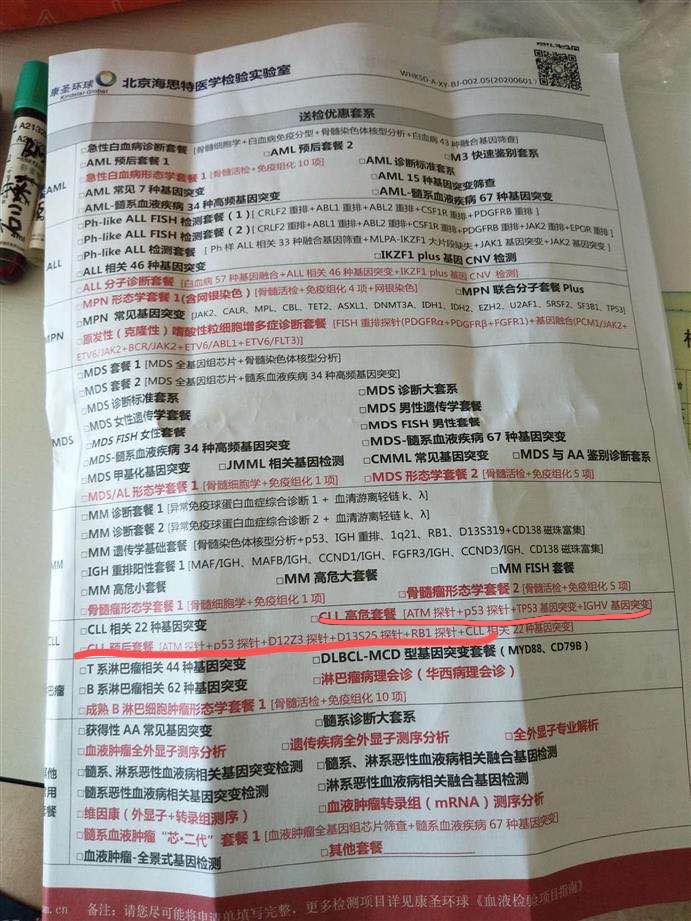 康圣环球
Kindstar Global
北京海思特医学检验实验室
WHKSD-A-XY-BJ-002.05(20200601)
送检优惠套系
AML
□急性白血病诊断套餐 [骨髓细胞学+白血病免疫分型+骨髓染色体核型分析+白血病 43 种融合基因筛查]
□AML 预后套餐 1 □AML 预后套餐 2 □AML 诊断标准套系 □M3 快速鉴别套系
□急性白血病形态学套餐 1 [骨髓活检+免疫组化 10 项]
□AML 常见 7 种基因突变 □AML 15 种基因突变筛查
□AML-髓系血液疾病 34 种高频基因突变 □AML-髓系血液疾病 67 种基因突变
ALL
□Ph-like ALL FISH 检测套餐 (1) [ CRLF2 重排+ABL1 重排+ABL2 重排+CSF1R 重排+PDGFRB 重排 ]
□Ph-like ALL FISH 检测套餐 (2) [ CRLF2 重排+ABL1 重排+ABL2 重排+CSF1R 重排+PDGFRB 重排+JAK2 重排+EPOR 重排 ]
□Ph-like ALL 检测套餐 [ Ph 样 ALL 相关 33 种融合基因筛查+MLPA-IKZF1 大片段缺失+JAK1 基因突变+JAK2 基因突变 ]
□ALL 相关 46 种基因突变 □IKZF1 plus 基因 CNV 检测
□ALL 分子诊断套餐 [白血病 57 种基因融合+ALL 相关 46 种基因突变+IKZF1 plus 基因 CNV 检测]
MPN
□MPN 形态学套餐 1(含网银染色) [骨髓活检+免疫组化 4 项+网银染色] □MPN 联合分子套餐 Plus
□MPN 常见基因突变 [JAK2、CALR、MPL、CBL、TET2、ASXL1、DNMT3A、IDH1、IDH2、EZH2、U2AF1、SRSF2、SF3B1、TP53]
□原发性（克隆性）嗜酸性粒细胞增多症诊断套餐 [FISH 重排探针(PDGFRα+PDGFRβ+FGFR1)+基因融合(PCM1/JAK2+
ETV6/JAK2+BCR/JAK2+ETV6/ABL1+ETV6/FLT3)]
MDS
□MDS 套餐 1 [MDS 全基因组芯片+骨髓染色体核型分析]
□MDS 套餐 2 [MDS 全基因组芯片+髓系血液疾病 34 种高频基因突变]
□MDS 诊断标准套系 □MDS 诊断大套系
□MDS 女性遗传学套餐 □MDS 男性遗传学套餐
□MDS FISH 女性套餐 □MDS FISH 男性套餐
□MDS-髓系血液疾病 34 种高频基因突变 □MDS-髓系血液疾病 67 种基因突变
□MDS 甲基化基因突变 □JMML 相关基因检测 □CMML 常见基因突变 □MDS 与 AA 鉴别诊断套系
□MDS/AL 形态学套餐 1 [骨髓细胞学+免疫组化 1 项] □MDS 形态学套餐 2 [骨髓活检+免疫组化 5 项]
MM
□MM 诊断套餐 1 [异常免疫球蛋白血症综合诊断 1 + 血清游离轻链 κ、λ]
□MM 诊断套餐 2 [异常免疫球蛋白血症综合诊断 2 + 血清游离轻链 κ、λ]
□MM 遗传学基础套餐 [骨髓染色体核型分析+p53、IGH 重排、1q21、RB1、D13S319+CD138 磁珠富集]
□IGH 重排阳性套餐 1 [MAF/IGH、MAFB/IGH、CCND1/IGH、FGFR3/IGH、CCND3/IGH、CD138 磁珠富集]
□MM 高危小套餐 □MM 高危大套餐 □MM FISH 套餐
□骨髓瘤形态学套餐 1 [骨髓细胞学+免疫组化 1 项] □骨髓瘤形态学套餐 2 [骨髓活检+免疫组化 5 项]
CLL
□CLL 相关 22 种基因突变 □CLL 高危套餐 [ATM 探针+p53 探针+TP53 基因突变+IGHV 基因突变]
□CLL 预后套餐 [ATM 探针+p53 探针+D12Z3 探针+D13S25 探针+RB1 探针+CLL 相关 22 种基因突变]
巴瘤
□T 系淋巴瘤相关 44 种基因突变 □DLBCL-MCD 型基因突变套餐 (MYD88、CD79B)
□B 系淋巴瘤相关 62 种基因突变 □淋巴瘤病理会诊（华西病理会诊）
□成熟 B 淋巴细胞肿瘤形态学套餐 1 [骨髓活检+免疫组化 10 项]
其他
套餐
□获得性 AA 常见基因突变 □髓系诊断大套系
□血液肿瘤全外显子测序分析 □遗传疾病全外显子测序分析 □全外显子专业解析
□髓系、淋系恶性血液病相关基因突变检测 □髓系、淋系恶性血液病相关融合基因检测
□髓系恶性血液病相关基因突变检测 □淋系恶性血液病相关融合基因检测
□维因康（外显子+转录组测序） □血液肿瘤转录组（mRNA）测序分析
□髓系血液肿瘤“芯·二代”套餐 1 [血液肿瘤全基因组芯片筛查+髓系血液疾病 67 种基因突变]
□血液肿瘤-全景式基因检测 □其他套餐
备注：请您尽可能将申请单填写完整，更多检测项目详见康圣环球《血液检验项目指南》